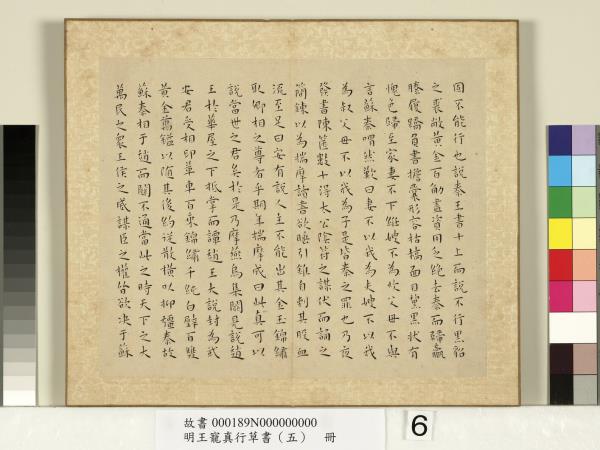 固不能行也說秦王書十上而說不行黑貂
之裘敝黃金百斤盡資用乏絕去秦而歸羸
縢履蹻負書擔橐形容枯槁面目黧黑狀有
愧色歸至家妻不下絍嫂不為炊父母不與
言蘇秦喟然歎曰妻不以我為夫嫂不以我
為叔父母不以我為子是皆秦之罪也乃夜
發書陳篋數十得太公陰符之謀伏而誦之
簡練以為揣摩讀書欲睡引錐自刺其股血
流至足曰安有說人主不能出其金玉錦繡
取卿相之尊者乎期年揣摩成曰此真可以
說當世之君矣於是乃摩燕烏集闕見說趙
王於華屋之下抵掌而譚趙王大說封為武
安君受相印革車百乘錦繡千純白璧百雙
黃金萬鎰以隨其後約從散橫以抑彊秦故
蘇秦相于趙而關不通當此之時天下之大
萬民之衆王侯之威謀臣之權皆欲决于蘇
故書 000189N000000000
明王寵真行草書（五） 冊
6